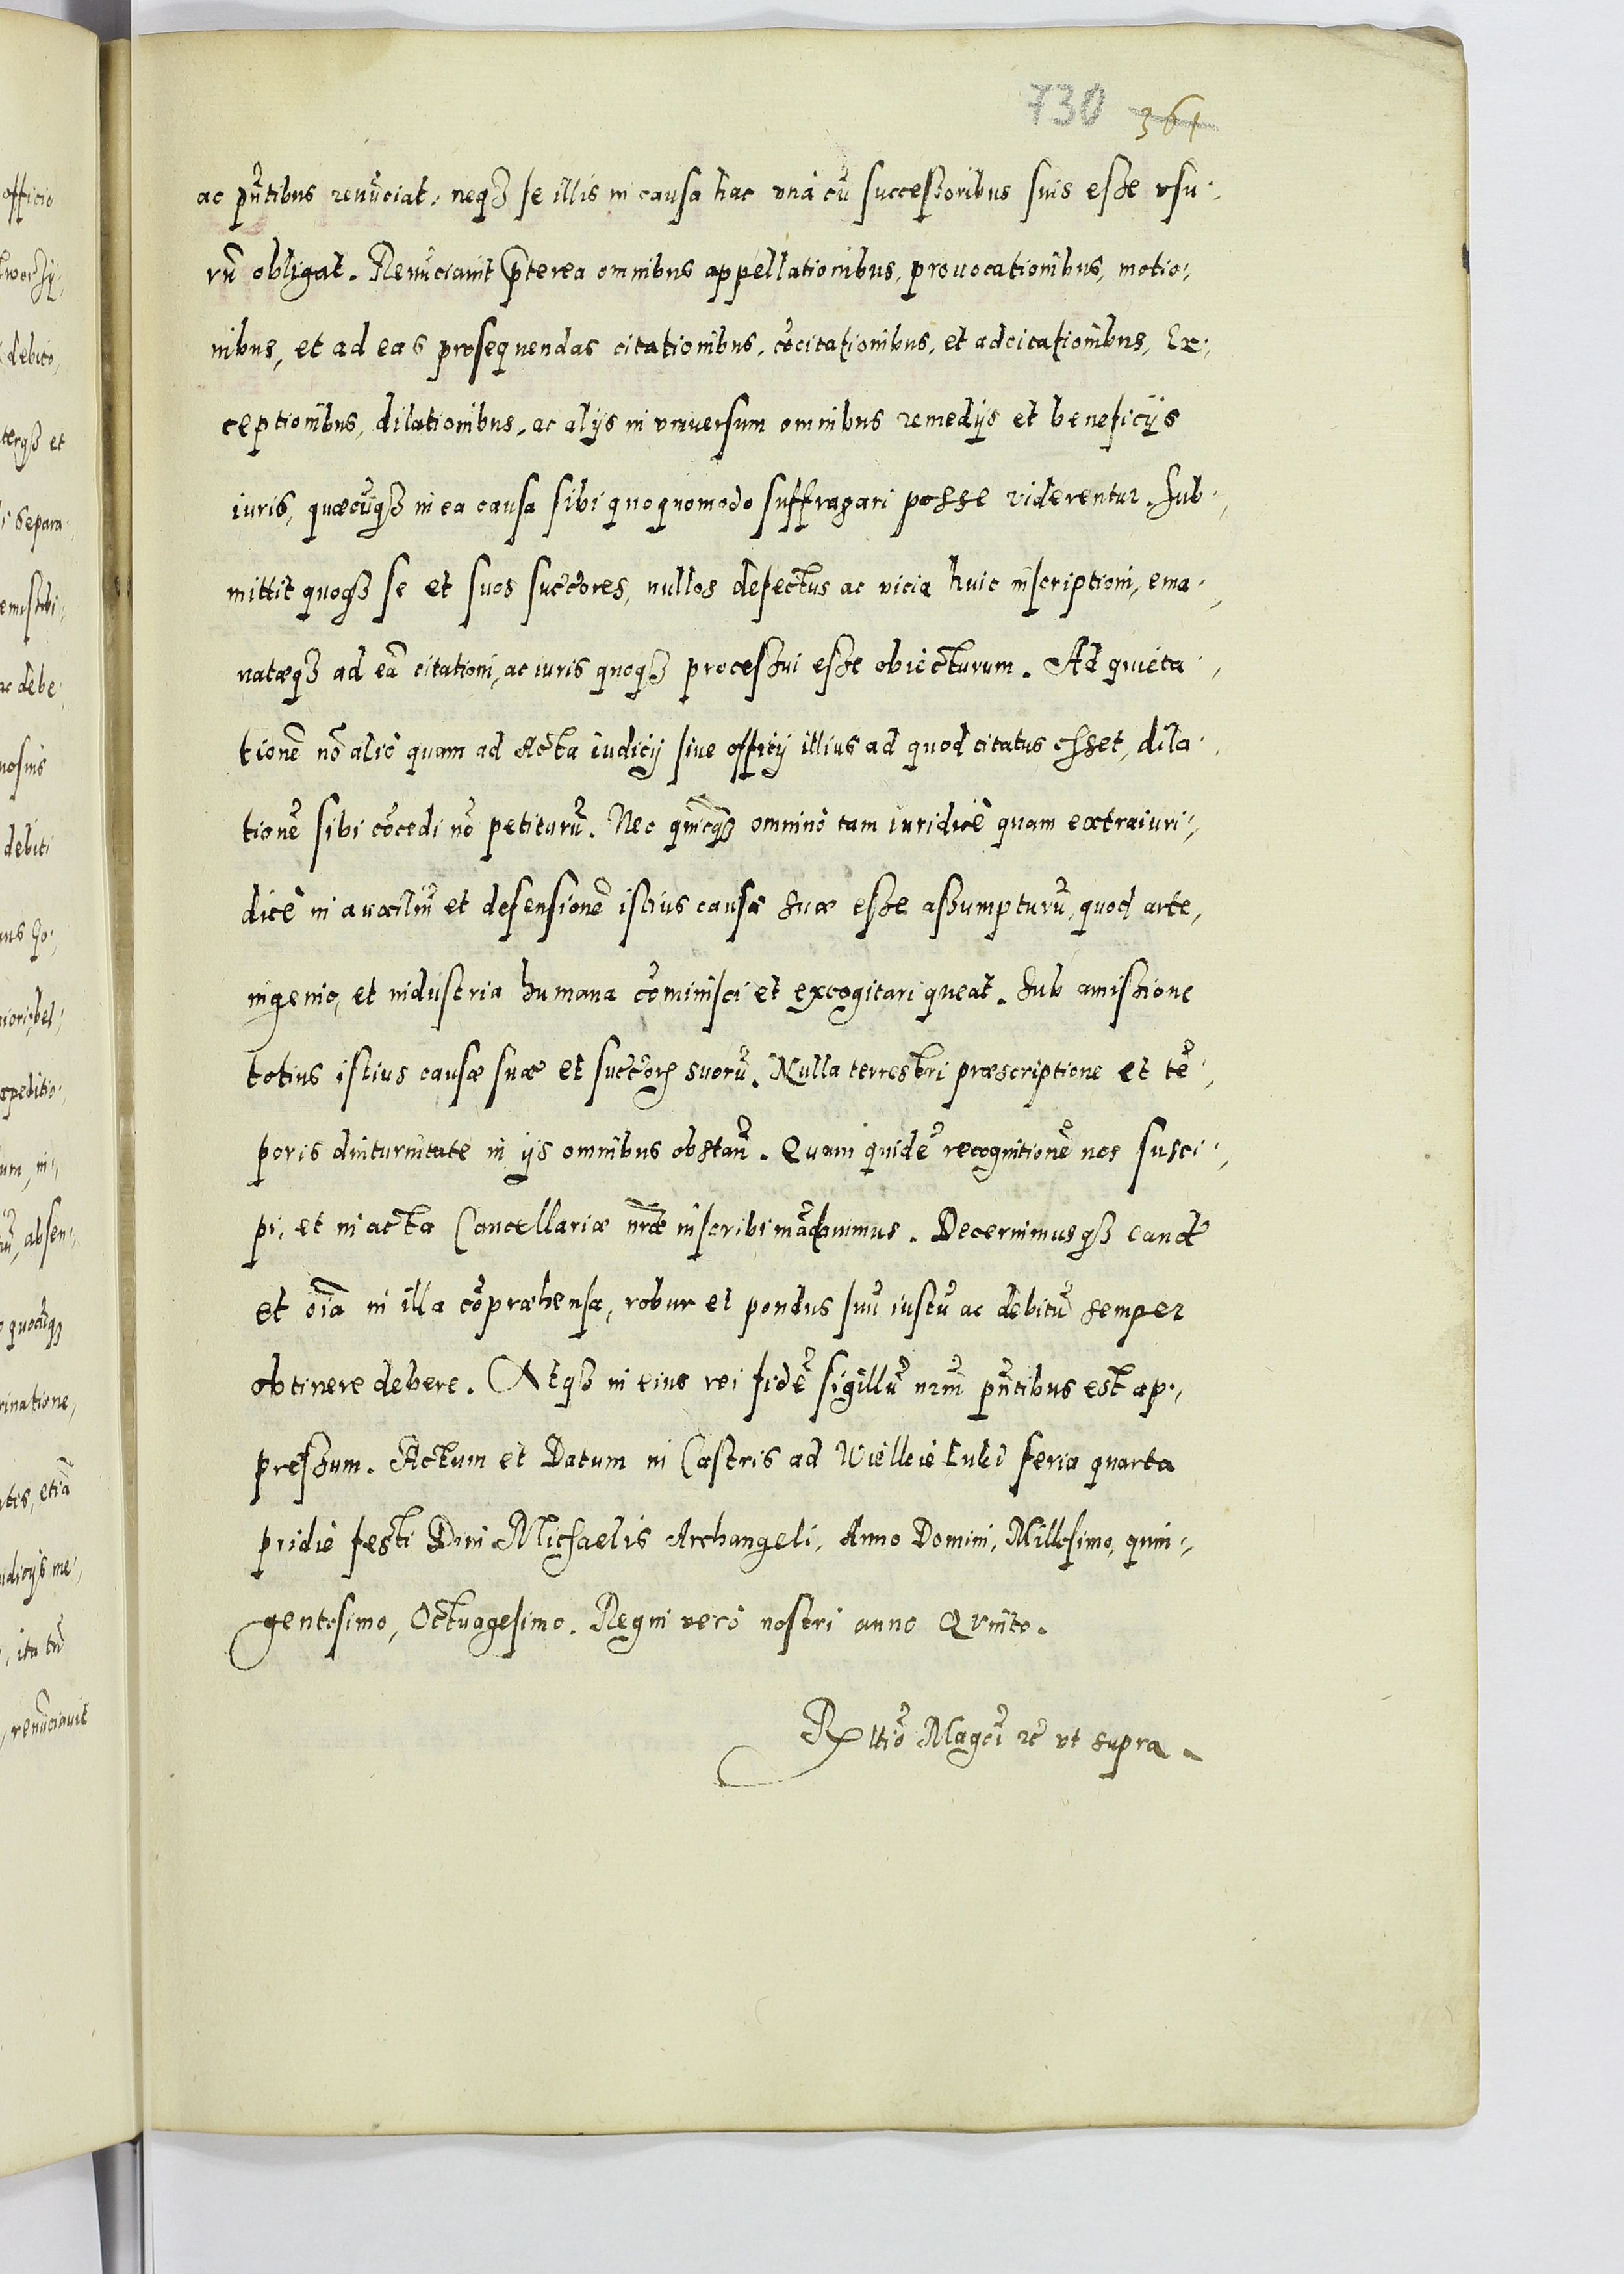 730 361
ac pñtibus renũciat. neqꝫ se illis in causa hac unà cũ successoribus suis esse usu-
rũ obligat. Renũciavit p̃terea omnibus appellationibus, provocationibus, motio-
nibus, et ad eas prosequendas citationibus, cõcitationibus, et adcitationibus, Ex-
ceptionibus, dilationibus, ac alijs in universum omnibus remedijs et beneficijs
iuris, quæcũqꝫ in ea causa sibi quoquomodo suffragari posse viderentur. Sub-
mittit quoqꝫ se et suos succõres, nullos defectus ac vicia huic inscriptioni, ema-
natæqꝫ ad eã citationi, ac iuris quoqꝫ processui esse obiecturum. Ad quieta-
tionẽ nõ aliò quam ad Acta iudicij sive officij illius ad quod citatus esset, dila-
tionẽ sibi cõcedi nõ petiturũ. Nec quicqꝫ omninò tam iuridicè quam extraiuri-
dicè in auxiliũ et defensionẽ istius causæ suæ esse assumpturũ, quod arte,
ingenio, et industria humana cõminisci et excogitari queat. Sub amissione
totius istius causæ suæ et succõrꝫ suorũ. Nulla terrestri præscriptione et tẽ-
poris diuturnitate in ijs omnibus obstañ. Quam quidẽ recognitionẽ nos susci-
pi, et in acta Cancellariæ nr̃æ inscribi mãdavimus. Decernimusqꝫ eand̃
et oĩa in illa cõpræhensa, robur et pondus suũ iustũ ac debitũ semper
obtinere debere. Atqꝫ in eius rei fidẽ sigillũ nrm̃ pñtibus est ap-
pressum. Actum et Datum in Castris ad Wielkie Luki feria quarta
pridiè festi Divi Michaelis Archangeli, Anno Domini, Millesimo, quin-
gentesimo, Octuagesimo. Regni verò nostri anno Quinto.
Rltiõ Magcĩ ꝛc̃ ut supra.